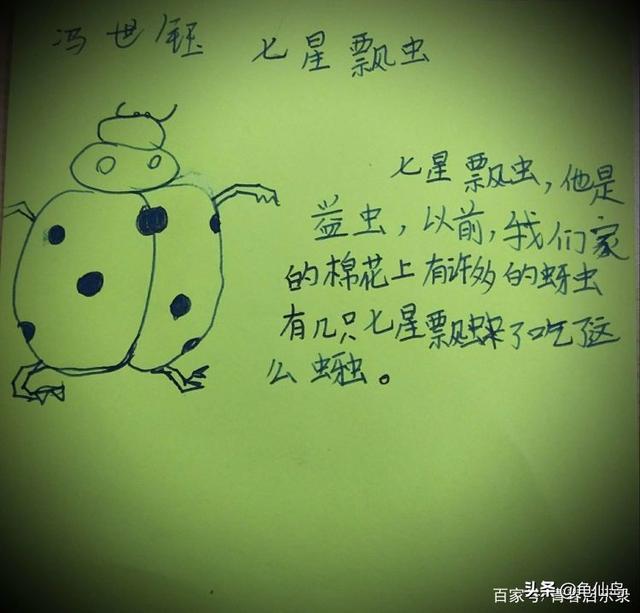 冯世钰 七星飘虫
七星飘虫，他是
益虫，以前，我们家
的棉花上有许多的蚜虫
有几只七星飘虫来了吃了这
么蚜虫。
头条 @龟仙岛
百家号/青春启示录